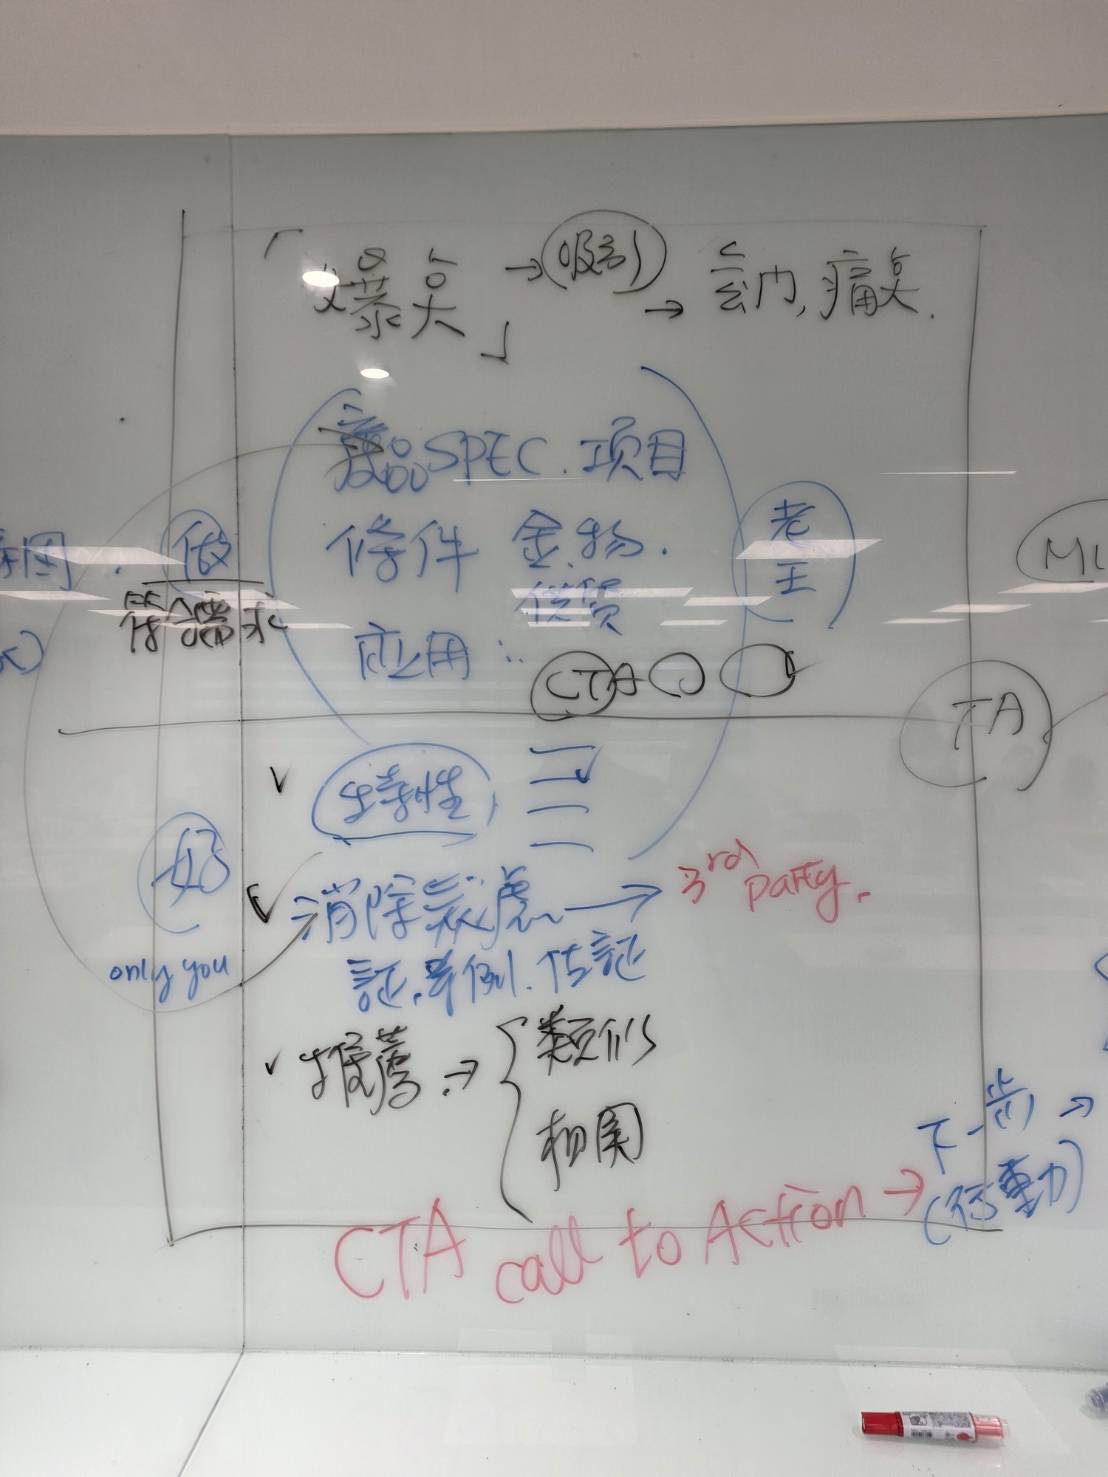 「爆点」→吸引→
痛点.
產品SPEC. 項目
條件 金.物.
做
老王
符合需求
應用:..
CTA
TA
特性
好
only you
消除疑慮→3rd party.
証.案例.
推薦→{類似
相関
下一步→
(行動)
CTA call to Action→